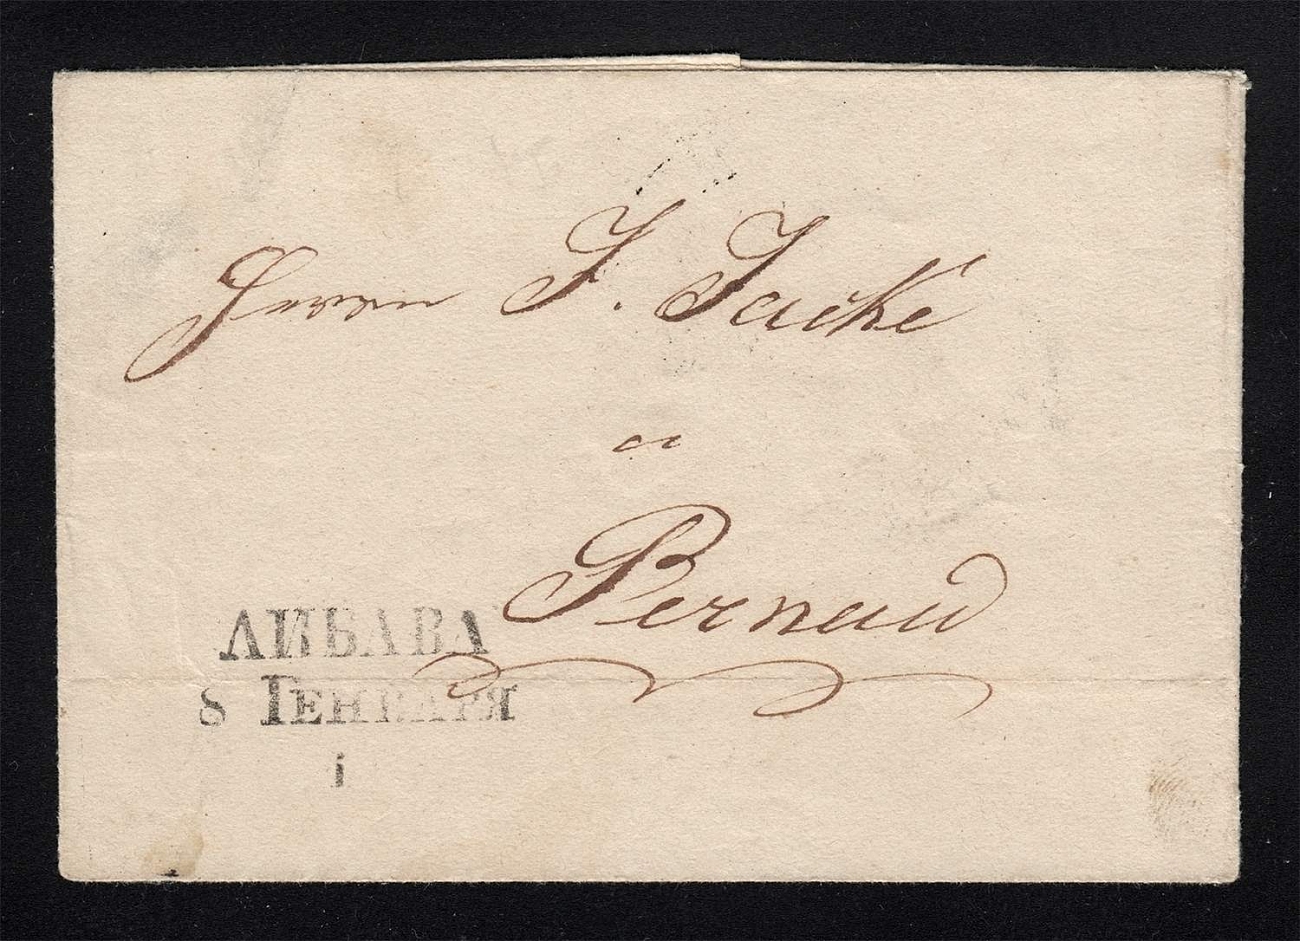 Herrn J. Jacké
a
Pernau
ЛИБАВА
8 ГЕНВАРЯ
i